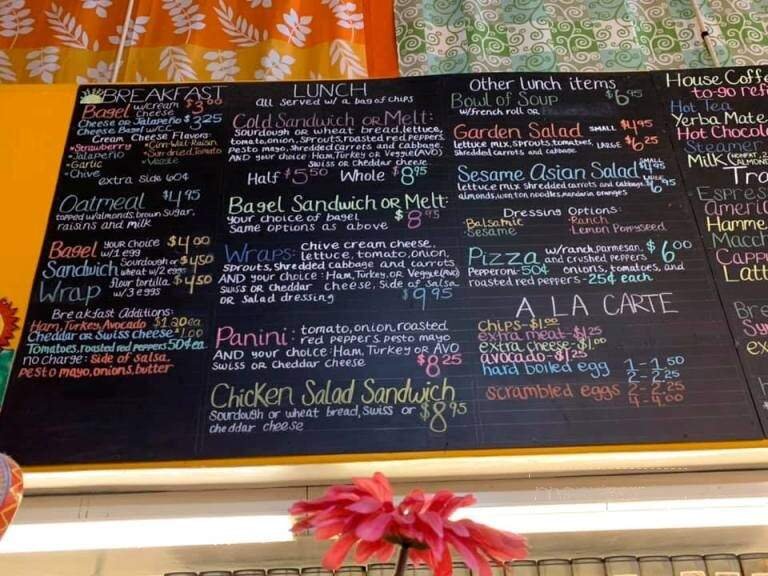 BREAKFAST
Bagel w/cream cheese $3.00
Cheese or Jalapeño $3.25
Cheese Bagel w/C.C.
Cream Cheese Flavors:
•Strawberry •Cinn-Wal-Raisin
•Jalapeño •Sun dried Tomato
•Garlic •Veggie
•Chive
extra side 60¢
Oatmeal $4.95
topped w/almonds, brown sugar,
raisins and milk
Bagel YOUR CHOICE w/1 egg $4.00
Sandwich Sourdough or wheat w/2 eggs $4.50
Wrap flour tortilla w/3 eggs $4.50
Breakfast Additions:
Ham, Turkey, Avocado $1.20ea
Cheddar or Swiss Cheese $1.00
Tomatoes, roasted red peppers 50¢ea
no charge: side of salsa,
pesto mayo, onions, butter
LUNCH
all served w/ a bag of chips
Cold Sandwich or Melt:
Sourdough or wheat bread, lettuce,
tomato, onion, Sprouts, roasted red peppers
pesto mayo, Shredded carrots and cabbage
AND your choice: Ham, Turkey or Veggie(AVO)
Swiss or Cheddar cheese
Half $5.50 Whole $8.95
Bagel Sandwich or Melt:
your choice of bagel
Same options as above $8.95
Wraps: Chive cream cheese,
lettuce, tomato, onion,
Sprouts, Shredded cabbage and carrots
AND your choice: Ham, Turkey, or Veggie(AVO)
Swiss or Cheddar cheese, Side of Salsa
or Salad dressing $9.95
Panini: tomato, onion, roasted
red peppers, pesto mayo
AND your choice: Ham, Turkey or AVO
Swiss or Cheddar cheese $8.25
Chicken Salad Sandwich
Sourdough or wheat bread, Swiss or
cheddar cheese $8.95
Other lunch items
Bowl of Soup $6.95
w/french roll or
Garden Salad SMALL $4.95
lettuce mix, sprouts, tomatoes, LARGE $6.25
Shredded carrots and cabbage
Sesame Asian Salad SMALL $4.95
lettuce mix, Shredded carrots and cabbage, LARGE $6.95
almonds, wonton noodles, mandarin oranges
Dressing Options:
•Balsamic •Ranch
•Sesame •Lemon Poppyseed
Pizza w/ranch, parmesan, and crushed peppers $6.00
Pepperoni-50¢ onions, tomatoes, and
roasted red peppers-25¢ each
A LA CARTE
chips-$1.00
extra meat-$1.25
extra cheese-$1.00
avocado-$1.25
hard boiled egg 1-1.50
2-2.25
scrambled eggs 2-2.25
4-4.00
House Coff
to-go refi
Hot Tea
Yerba Mate
Hot Chocol
Steamer
Milks
Tra
Espres
Americ
Hamme
Macch
Capp
Latt
Bre
Sy
ex